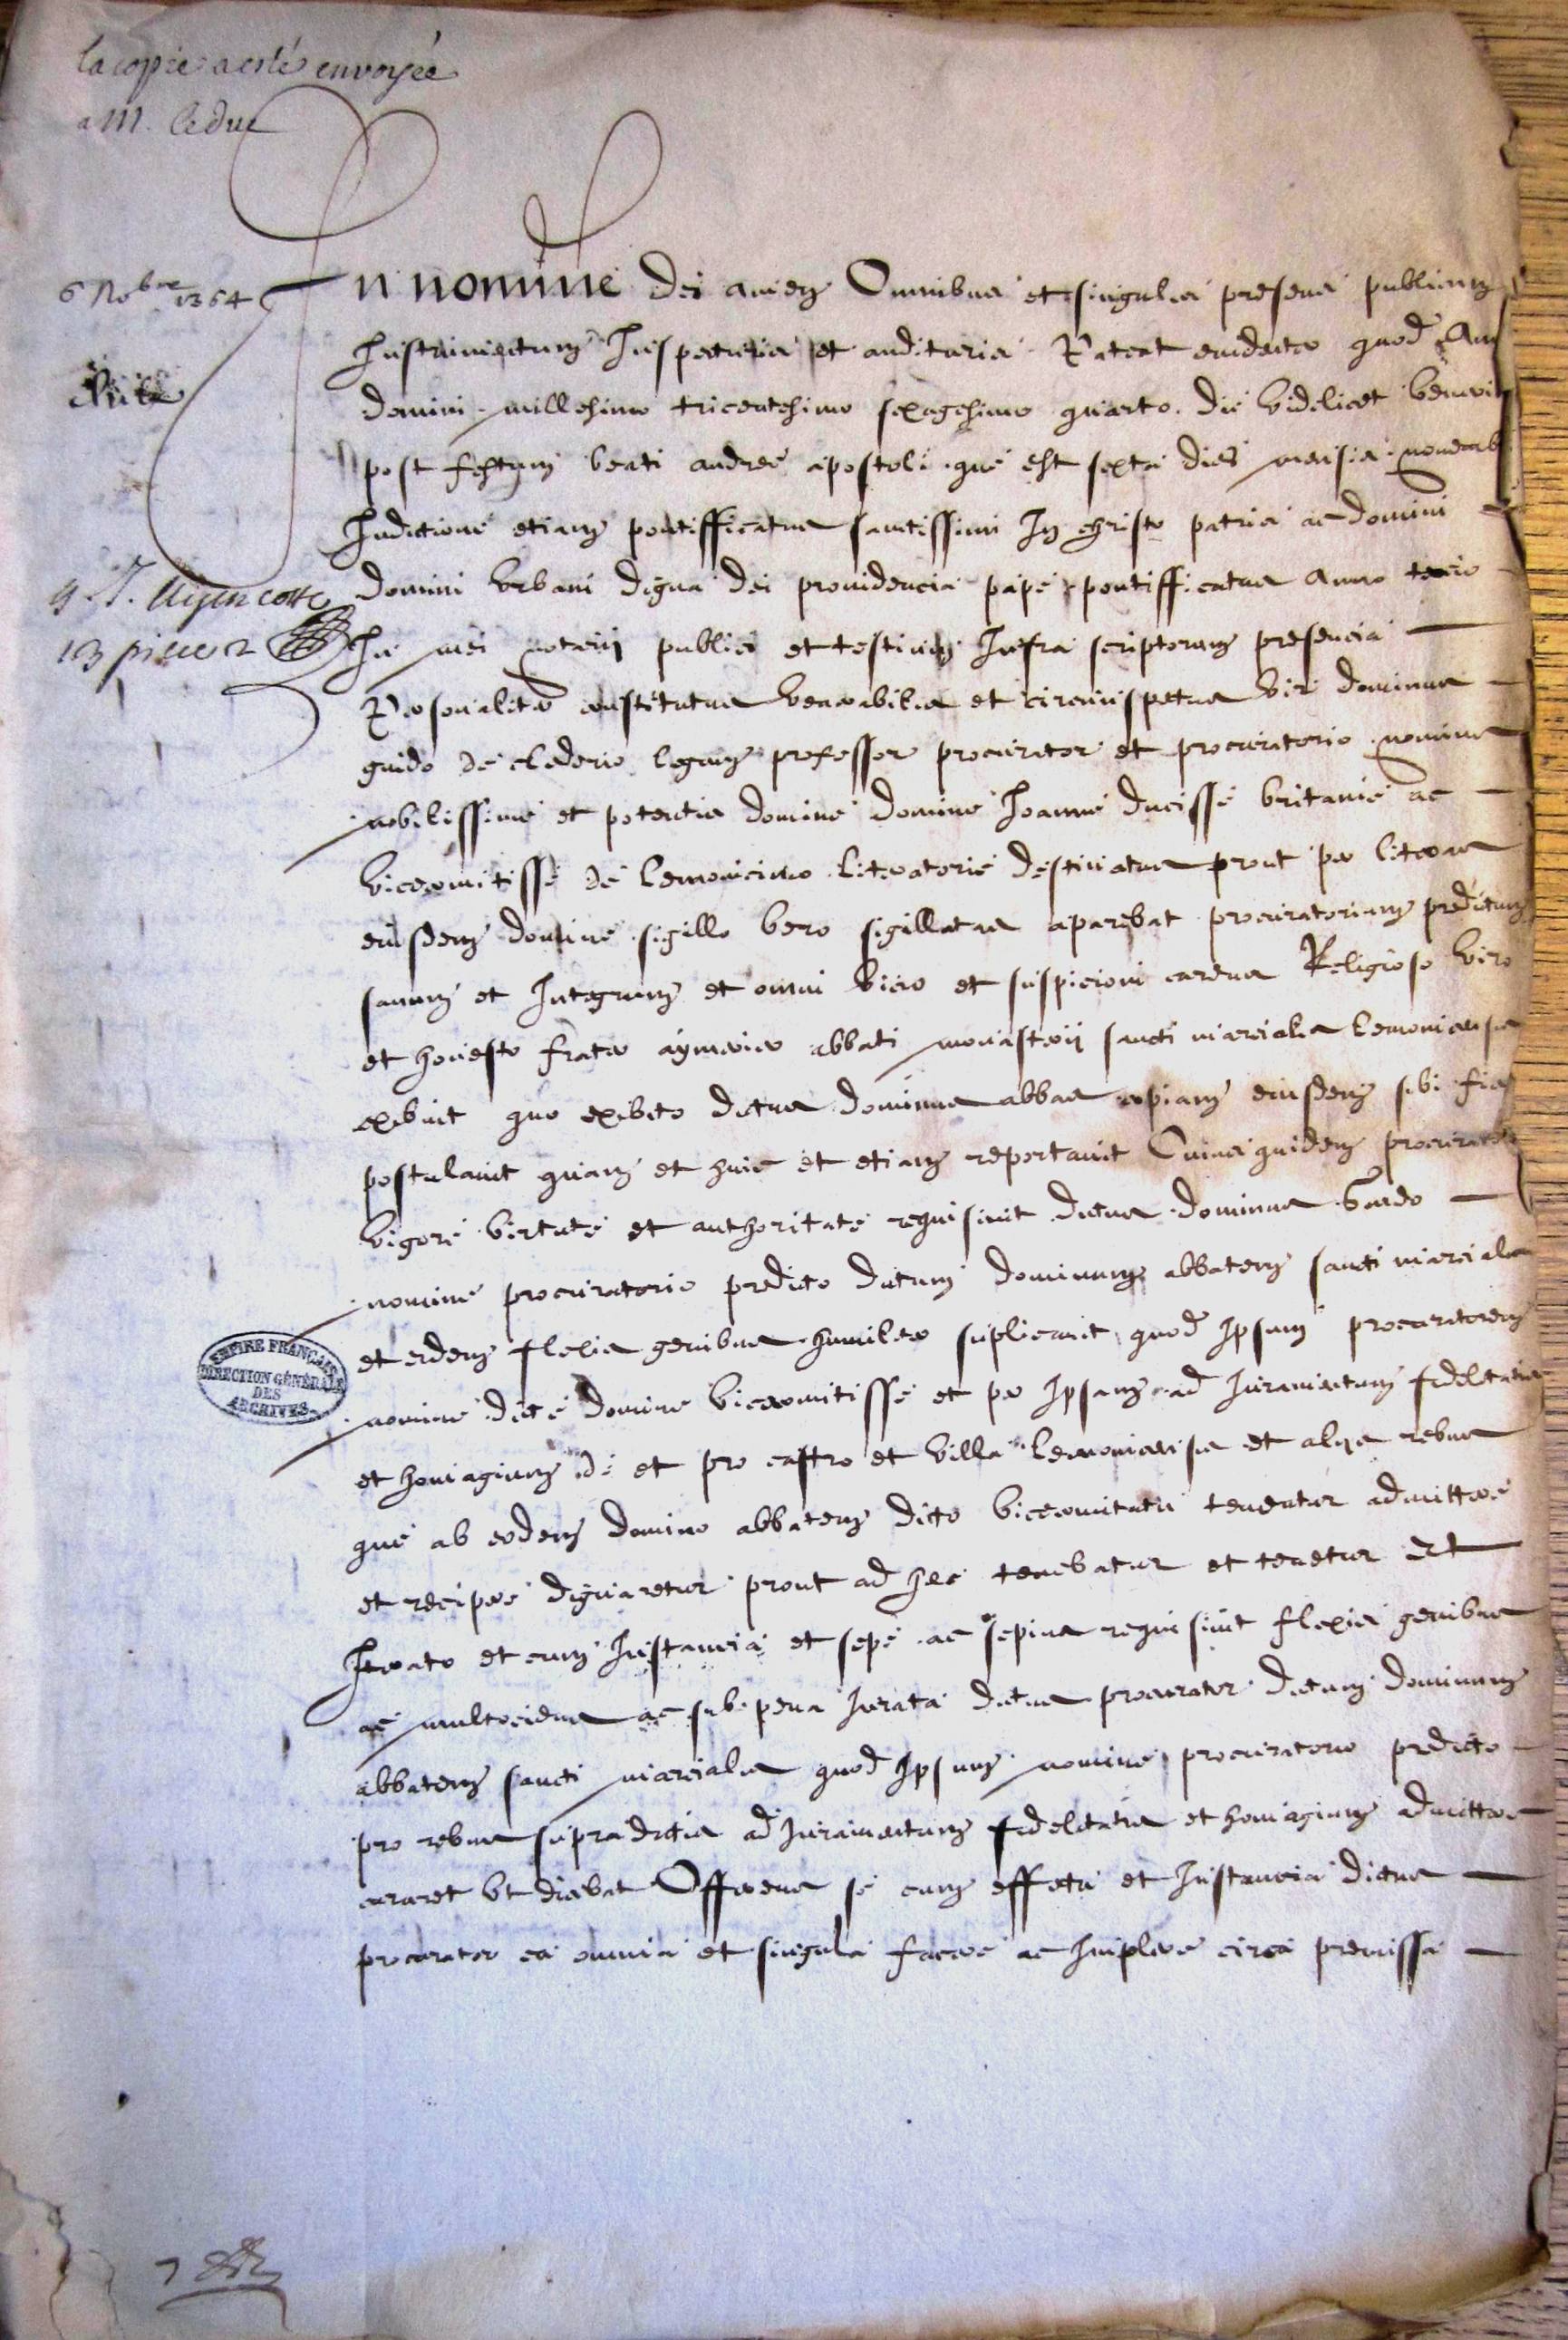 la copie a esté envoyée
a M. Leduc
6 No^bre 1364
In nomine dei amen Omnibus et singulis presens publicum
Instrumentum Inspecturis et audituris Pateat evidenter quod Ann
domini millesimo tricentesimo sexagesimo quarto die videlicet veneris
post festum beati andree apostoli que est sexta dies mensis novemb
Indictione etiam pontifficatus sanctissimi In christo patris ac domini
domini Urbani digna dei providencia pape pontifficatus anno tercio
13 pieces
In mei notarij publici et testium Infra scriptorum presencia
Personaliter constitutus venerabilis et circumspectus vir dominus
guido de clederio legum professor procurator et procuratorio nomine
nobilissime et potentis domine domine Joanne ducisse britanie ac
vicecomitisse de lemovicinio literatorie destinatus prout per literas
eiusdem domine sigillo vero sigillatas aparebat procuratorium predictum
sanum et Integrum et omni vicio et suspicioni carens Religioso viro
et honesto fratri aymerico abbati monasterij sancti marcialis lemovicensis
exibuit quo exibito dictus dominus abbas copiam eiusdem sibi fieri
postulavit quam et hinc et etiam reportavit Cuius quidem procuratorii
vigore virtute et authoritate requisivit dictus dominus Guido
nomine procuratorio predicto dictum dominum abbatem sancti marcialis
et eidem flexis genibus humiliter suplicavit quod Ipsum procuratorem
EMPIRE FRANÇAIS
DIRECTION GÉNÉRALE
DES
ARCHIVES
nomine dicte domine vicecomitisse et per Ipsam ad Juramentum fidelitatis
et homagium de et pro castro et villa lemovicensis et alijs rebus
que ab eodem domino abbatem dicto vicecomitatu tenentur admittere
et recipere dignaretur prout ad hec tenebatur et tenetur Et
Iterato et cum Instancia et sepe ac sepius requisivit flexis genibus
ac multociens ac sub pena Jurata dictus procurator dictum dominum
abbatem sancti marcialis quod Ipsum nomine procuratorio predicto
pro rebus supradictis ad Juramentum fidelitatis et homagium admittere
curaret ut dicebat Offerens se cum effectu et Instancia dictus
procurator ea omnia et singula facere ac Implere circa premissa